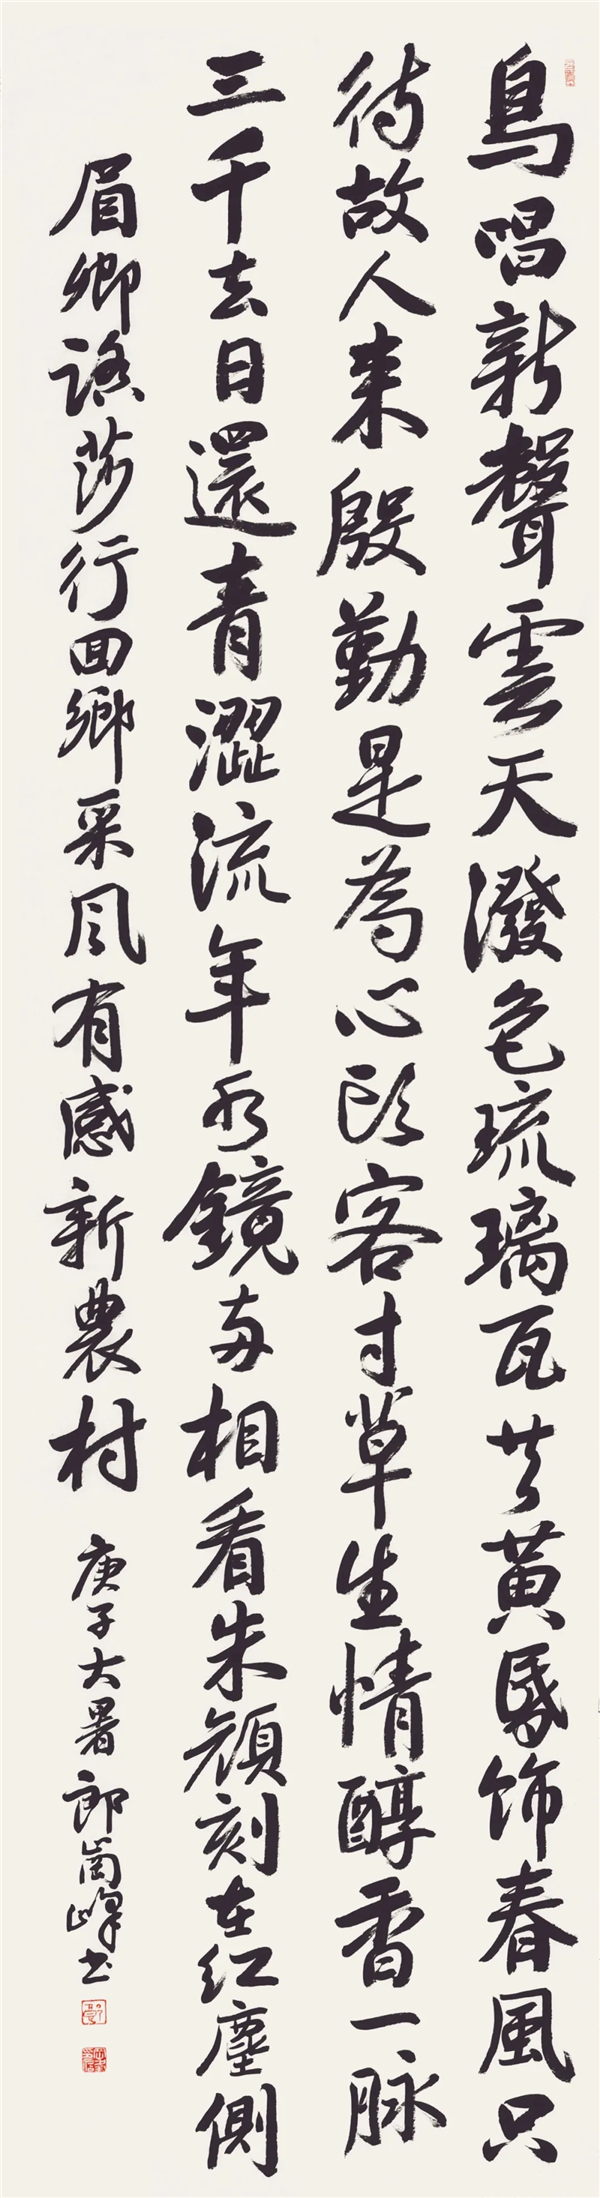 鳥唱新聲雲天潑色琉璃瓦共黃昏飾春風只
待故人来殷勤是為心頭客寸草生情醇香一脉
三千去日還青澀流年水鏡兩相看朱顏刻在紅塵側
眉卿踏莎行回鄉采风有感新農村 庚子大暑郎崗峰书